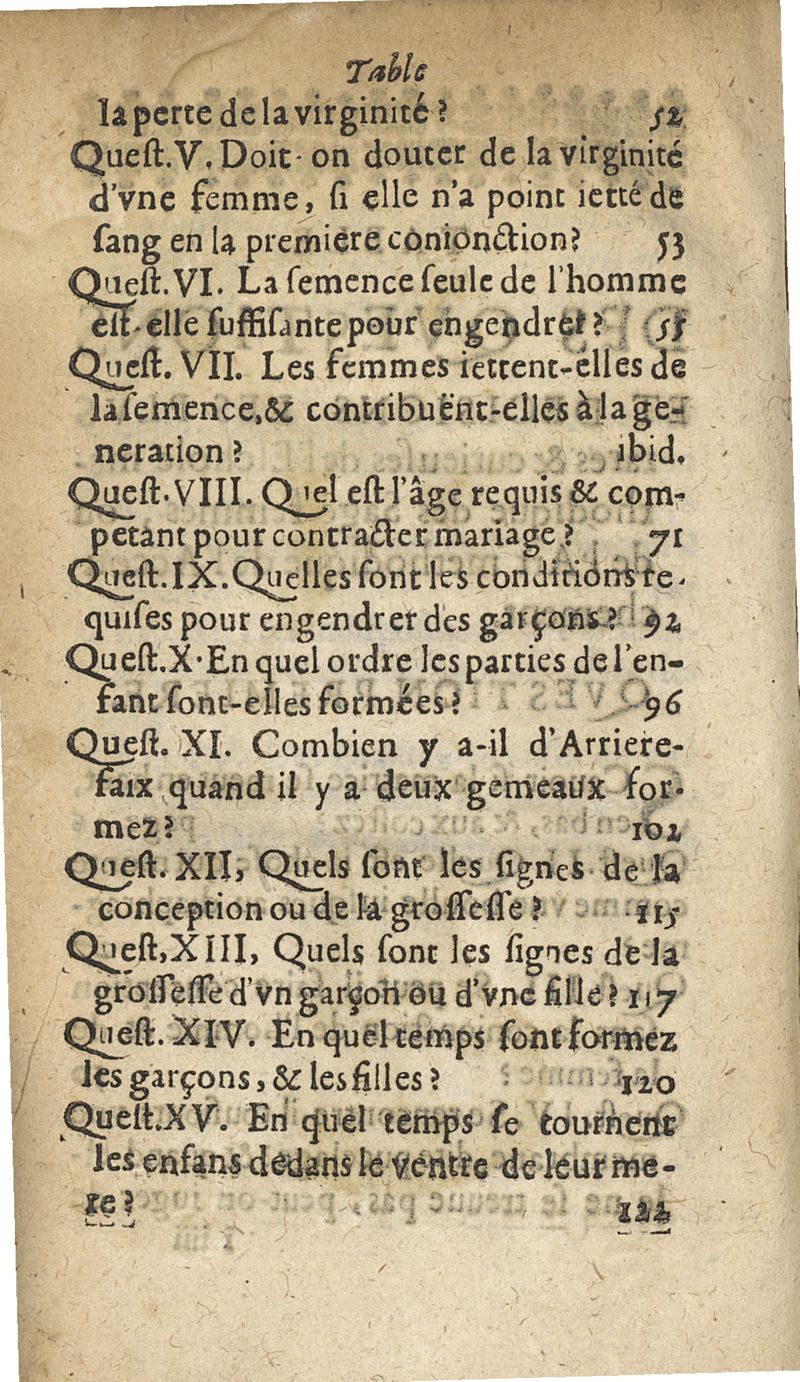 Table
la perte de la virginité ? 52
Queſt. V. Doit-on douter de la virginité
d'vne femme, ſi elle n'a point ietté de
ſang en la premiere conionction? 53
Queſt. VI. La ſemence ſeule de l'homme
eſt-elle ſuffiſante pour engendrer ? 55
Queſt. VII. Les femmes iettent-elles de
la ſemence, & contribuënt-elles à la ge-
neration ? ibid.
Queſt. VIII. Quel eſt l'âge requis & com-
petant pour contracter mariage ? 71
Queſt. IX. Quelles ſont les conditions re-
quiſes pour engendrer des garçons ? 92
Queſt. X. En quel ordre les parties de l'en-
fant ſont-elles formées ? 96
Queſt. XI. Combien y a-il d'Arriere-
faix quand il y a deux gemeaux for-
mez ? 102
Queſt. XII, Quels ſont les ſignes de la
conception ou de la groſſeſſe ? 115
Queſt, XIII, Quels ſont les ſignes de la
groſſeſſe d'vn garçon ou d'vne fille ? 117
Queſt. XIV. En quel temps ſont formez
les garçons, & les filles ? 120
Queſt. XV. En quel temps ſe tournent
les enfans dedans le ventre de leur me-
re ? 122